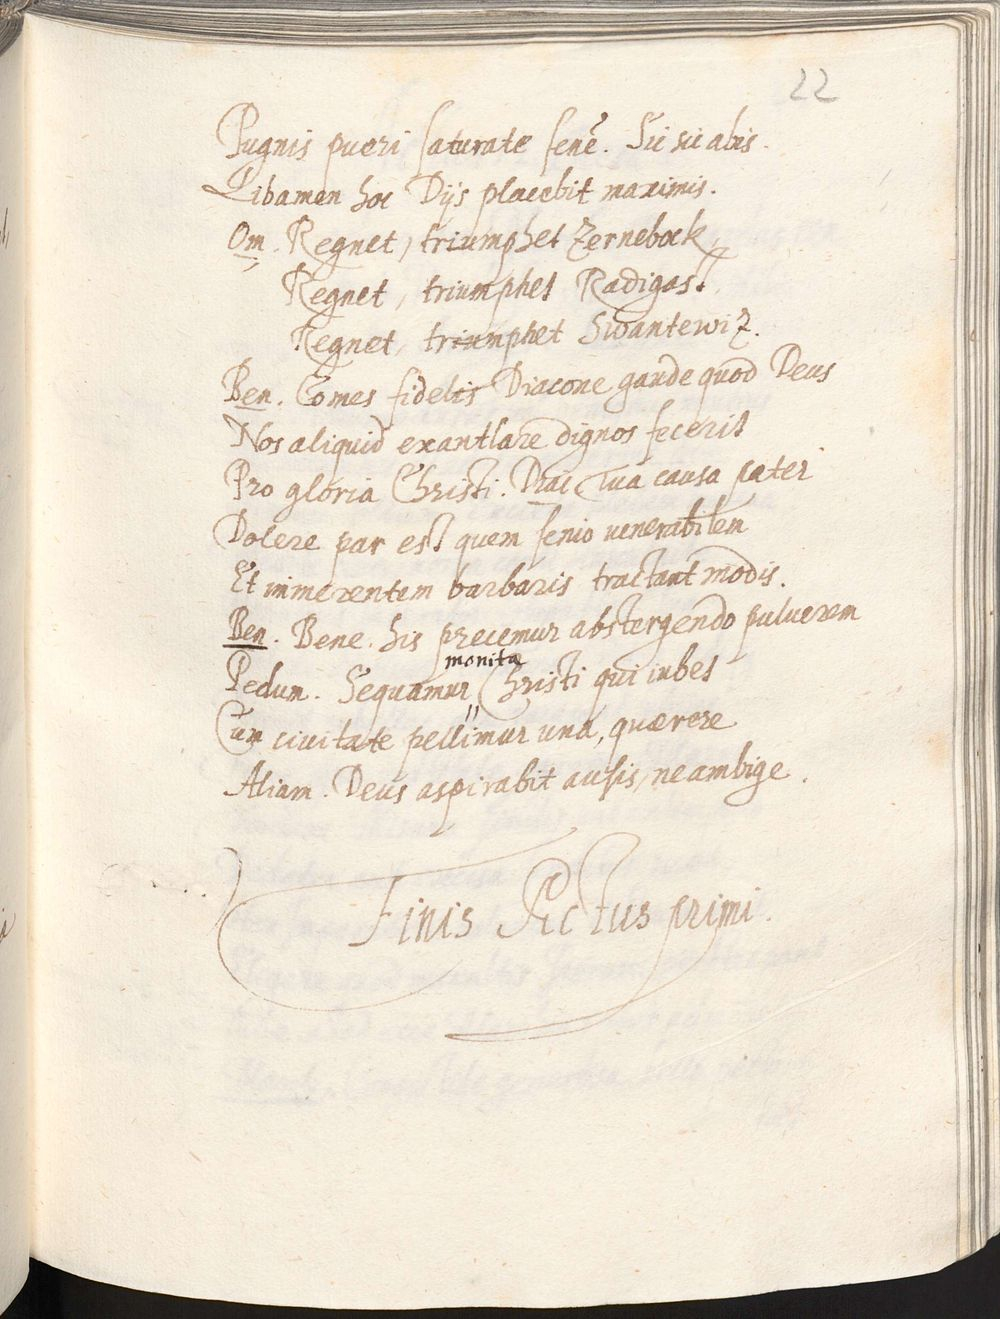 22
Pugnis pueri saturate senē. Sic sic abis.
Libamen hoc Dijs placebit maximis.
Om. Regnet, triumphet Zernebock,
Regnet, triumphet Radigast,
Regnet, triumphet Swantewiz.
Ben. Comes fidelis Diacone gaude quod Deus
Nos aliquid exantlare dignos fecerit
Pro gloria Christi. Diac Tua causa pater
Dolere par est quem senio venerabilem
Et immerentem barbaris tractant modis.
Ben. Bene his precemur abstergendo puluerem
Pedum. Sequamur monita Christi qui iubes
Cum ciuitate pellimur una, quærere
Aliam. Deus aspirabit ausis, ne ambige.
Finis Actus primi.